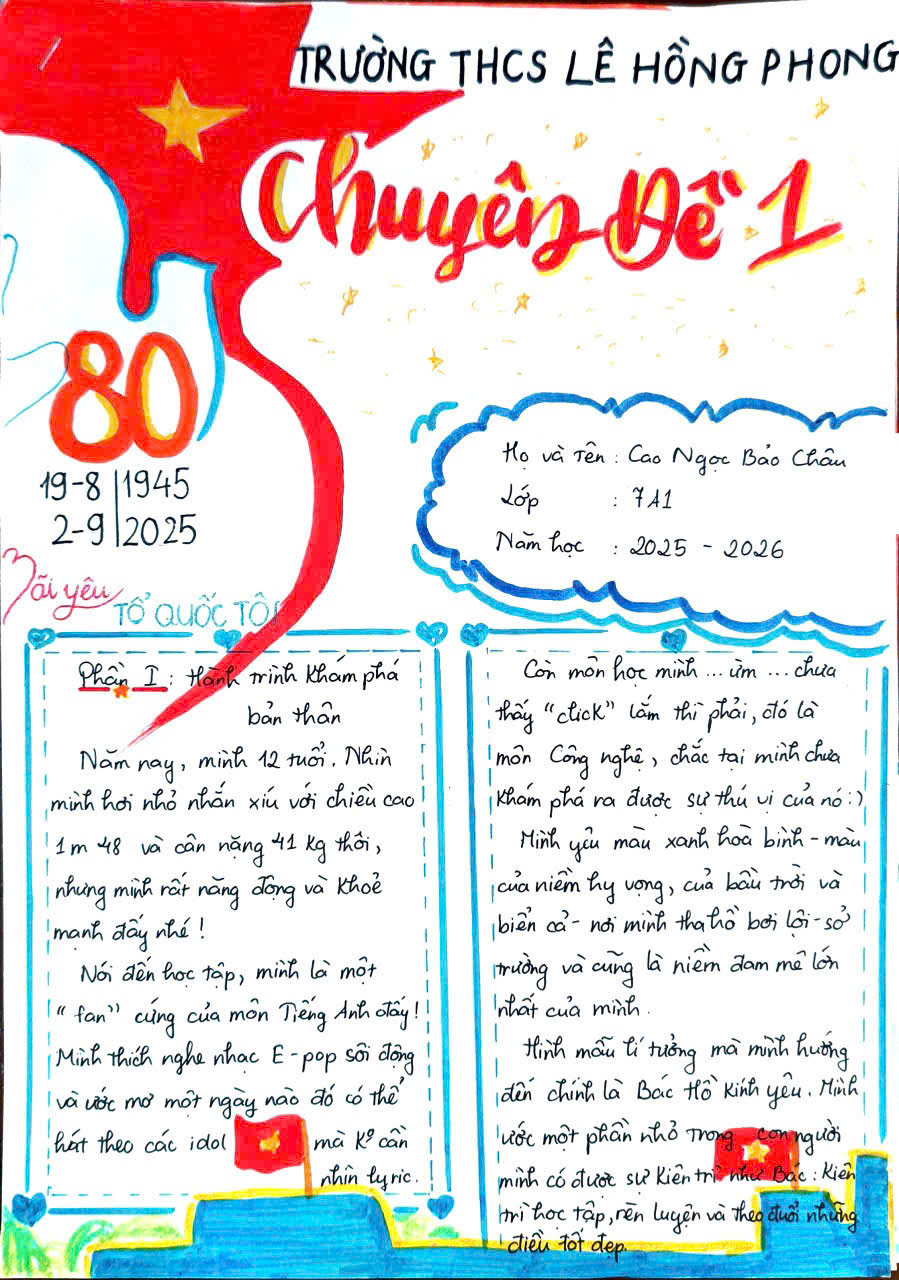 TRƯỜNG THCS LÊ HỒNG PHONG
Chuyên Đề 1
80
19-8 | 1945
2-9 | 2025
Mãi yêu
TỔ QUỐC TÔI
Họ và Tên : Cao Ngọc Bảo Châu
Lớp : 7A1
Năm học : 2025 - 2026
Phần I : Hành trình khám phá
bản thân
Năm nay, mình 12 tuổi. Nhìn
mình hơi nhỏ nhắn xíu với chiều cao
1m 48 và cân nặng 41 kg thôi,
nhưng mình rất năng động và khoẻ
mạnh đấy nhé !
Nói đến học tập, mình là một
"fan" cứng của môn Tiếng Anh đấy!
Mình thích nghe nhạc E-pop sôi động
và ước mơ một ngày nào đó có thể
hát theo các idol mà Kº cần
nhìn lyric.
Còn môn học mình ... ừm ... chưa
thấy "click" lắm thì phải, đó là
môn Công nghệ, chắc tại mình chưa
khám phá ra được sự thú vị của nó :)
Mình yêu màu xanh hoà bình - màu
của niềm hy vọng, của bầu trời và
biển cả - nơi mình tha hồ bơi lội - sở
trường và cũng là niềm đam mê lớn
nhất của mình.
Hình mẫu lí tưởng mà mình hướng
đến chính là Bác Hồ kính yêu. Mình
ước một phần nhỏ trong con người
mình có được sự kiên trì như Bác : Kiên
trì học tập, rèn luyện và theo đuổi những
điều tốt đẹp.